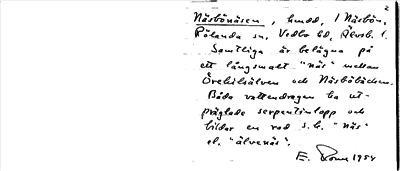 2
Näsbönäsen, hmdd, i Näsbön,
Rölanda sn, Vedbo hd, Älvsb. l.
Samtliga är belägna på
ett långsmalt "näs" mellan
Örekilsälven och Näsböbäcken.
Båda vattendragen ha ut-
präglade serpentinlopp och
bildar en rad s.k. "näs"
el. "älvenäs".
E. 1954